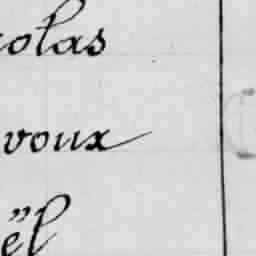 colas
voux
ël